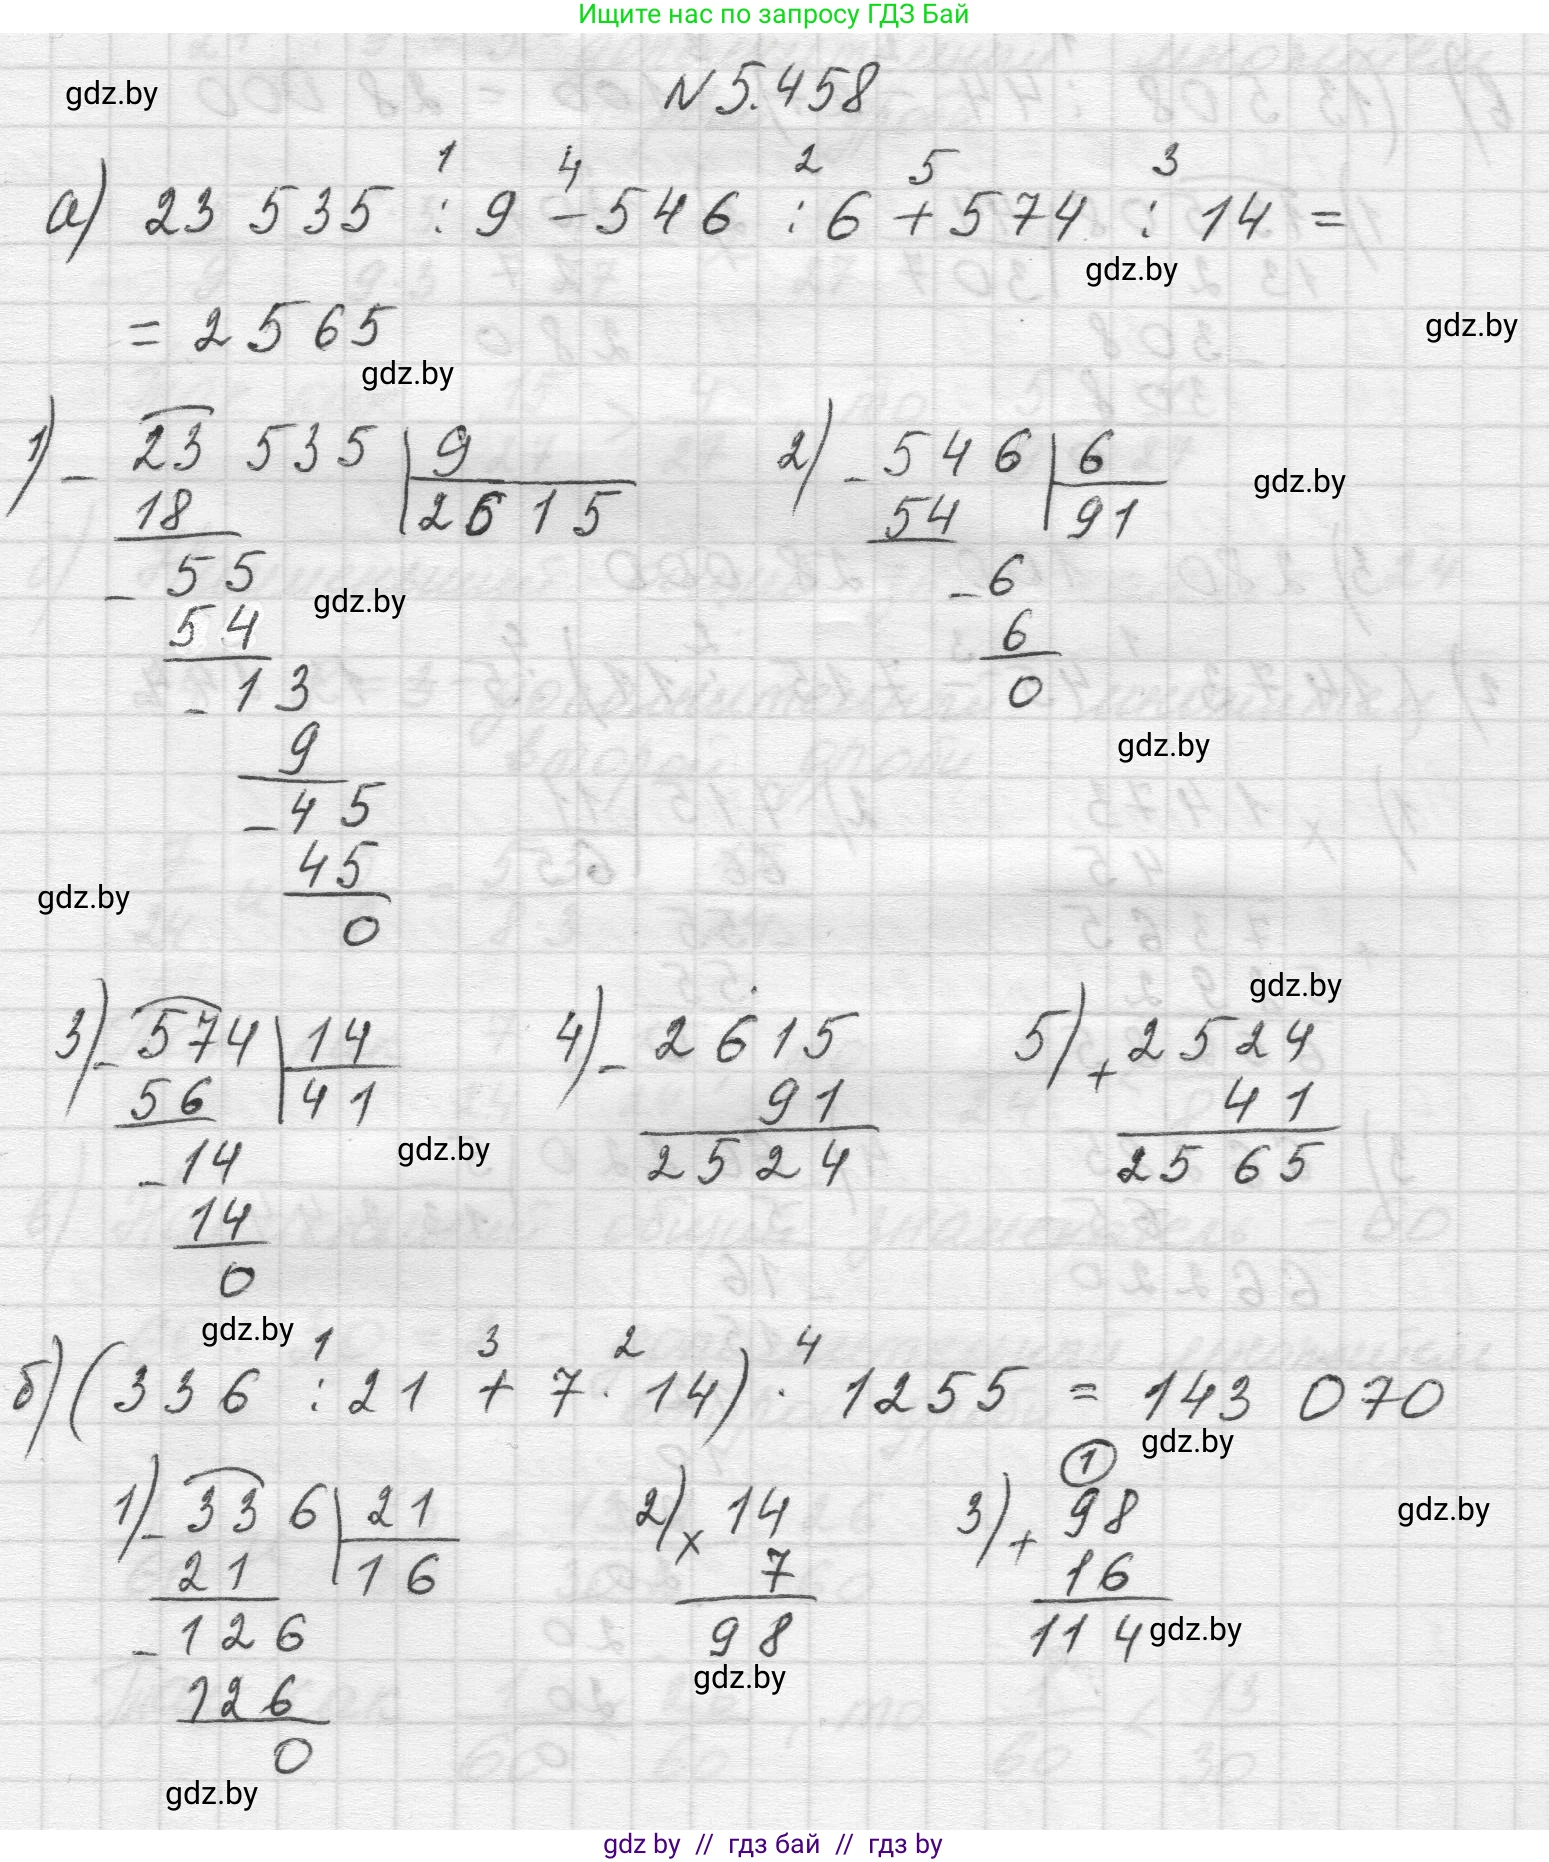 Ищите нас по запросу ГДЗ Бай
gdz.by
N 5.458
1 4 2 5 3
а) 23 535 : 9 - 546 : 6 + 574 : 14 =
gdz.by
= 2565
gdz.by
gdz.by
1) - 23 535 | 9
2) - 546 | 6
gdz.by
18 | 2615
54 | 91
- 55
- 6
gdz.by
54
6
- 13
0
9
gdz.by
- 45
45
gdz.by
0
gdz.by
3) - 574 | 14
4) - 2615
5) + 2524
56 | 41
91
41
gdz.by
- 14
2524
2565
14
0
gdz.by
1 3 2 4
б) (336 : 21 + 7 · 14) · 1255 = 143 070
gdz.by
1
1) - 336 | 21
2) x 14
3) + 98
gdz.by
21 | 16
7
16
- 126
98
114
gdz.by
gdz.by
126
0
gdz.by
gdz by // гдз бай // гдз by